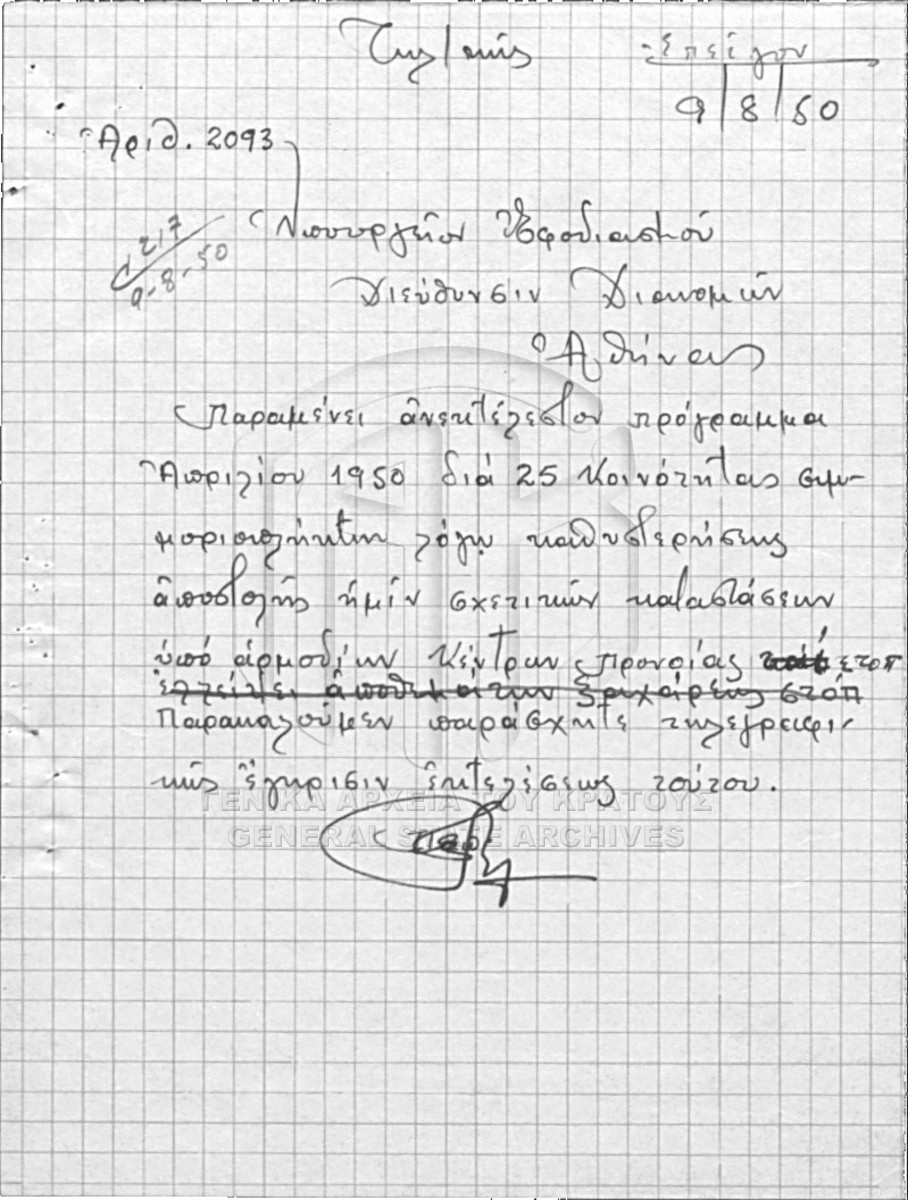 Τηλ/κῶς
Ἐπεῖγον
9/8/50
Ἀριθ. 2093
217
9-8-50
Ὑπουργεῖον Ἐφοδιασμοῦ
Διεύθυνσιν Διανομῶν
Ἀθήνας
Παραμένει ἀνεκτέλεστον πρόγραμμα
Ἀπριλίου 1950 διά 25 Κοινότητας συμ-
μοριοπλήκτων λόγῳ καθυστερήσεως
ἀποστολῆς ἡμῖν σχετικῶν καταστάσεων
ὑπό ἁρμοδίων Κέντρων Προνοίας στοπ
ἐλλείψει ἀποθεμάτων ζαχάρεως στόπ
Παρακαλοῦμεν παράσχητε τηλεγραφι-
κῶς ἔγκρισιν ἐκτελέσεως τούτου.
ΓΕΝΙΚΑ ΑΡΧΕΙΑ ΤΟΥ ΚΡΑΤΟΥΣ
GENERAL STATE ARCHIVES